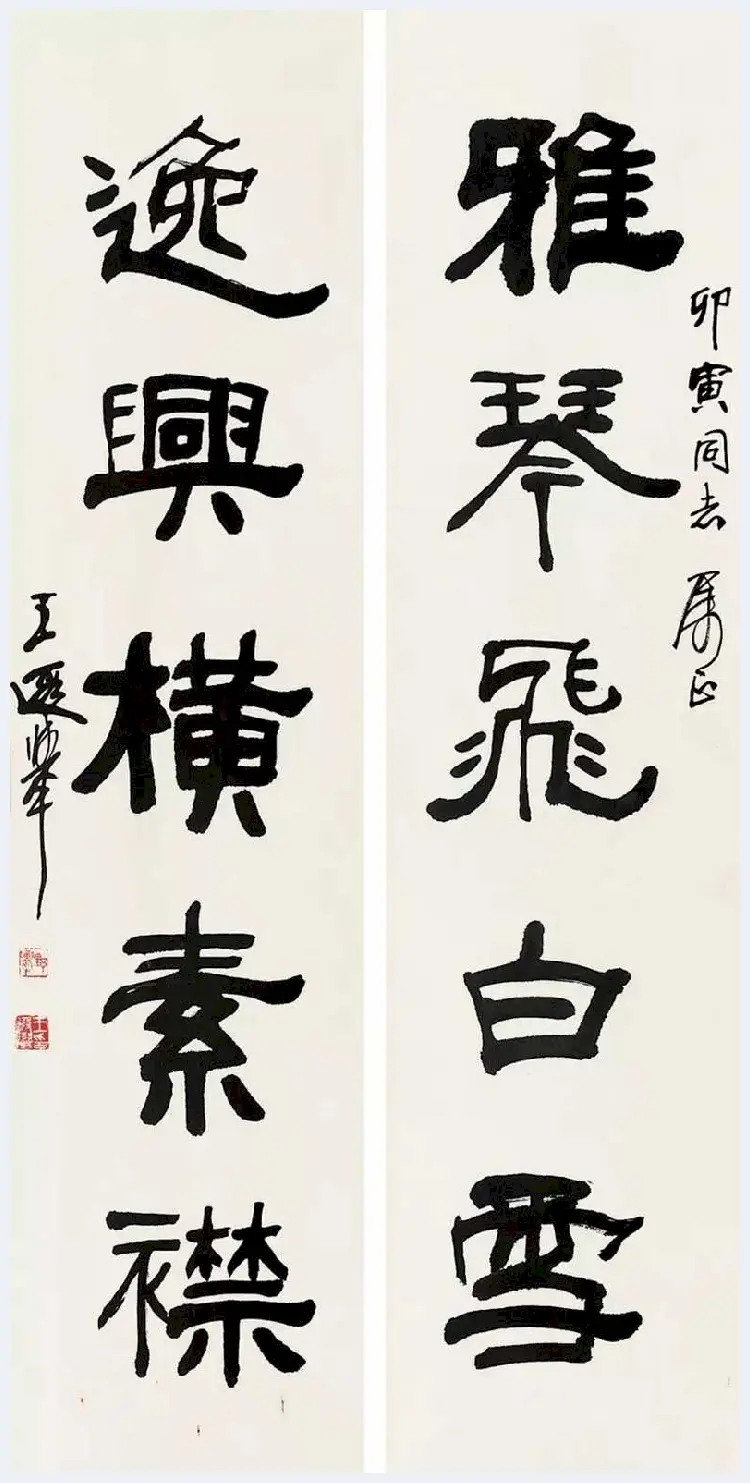 雅琴飛白雪
卯寅同志 属正
逸興横素襟
王遐舉